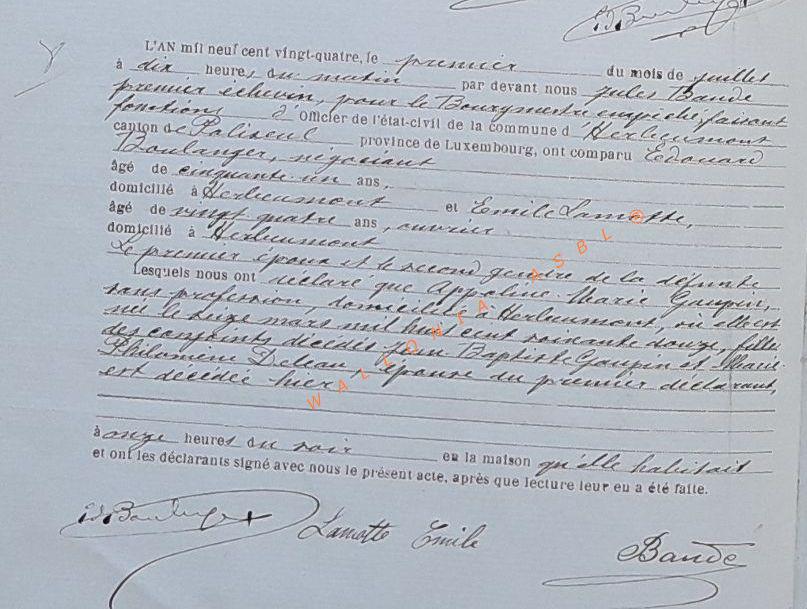 Ed. Boulanger
L'AN mil neuf cent vingt-quatre, le premier du mois de juillet
à dix heures du matin par devant nous Jules Bande
premier échevin, pour le Bourgmestre empêché, faisant
fonctions d'Officier de l'état-civil de la commune d'Herbeumont
canton de Paliseul province de Luxembourg, ont comparu Edouard
Boulanger, négociant
âgé de cinquante un ans,
domicilié à Herbeumont et Emile Lamotte,
âgé de vingt quatre ans, ouvrier
domicilié à Herbeumont
Le premier époux et le second gendre de la défunte
Lesquels nous ont déclaré que Appoline Marie Gaupin,
sans profession, domiciliée à Herbeumont, où elle est
née le seize mars mil huit cent soixante douze, fille
des conjoints décédés Jean Baptiste Gaupin et Marie
Philomène Deleau, épouse du premier déclarant,
est décédée hier
à onze heures du soir en la maison qu'elle habitait
et ont les déclarants signé avec nous le présent acte, après que lecture leur en a été faite.
Ed. Boulanger Lamotte Emile Bande
WALLONIA ASBL ©